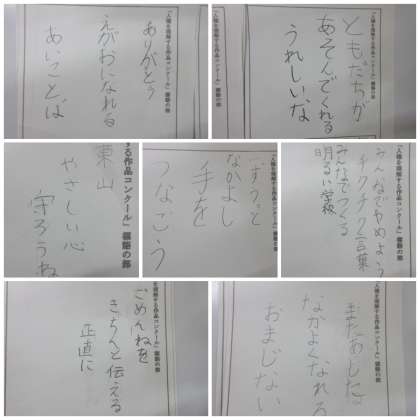 「人権を理解する作品コンクール」標語の部
ありがとう
えがおになれる
あいことば
「人権を理解する作品コンクール」標語の部
ともだちが
あそんでくれる
うれしいな
「人権を理解する作品コンクール」標語の部
する作品コンクール」標語の部
東山
やさしい心
守ろうね
「人権を理解する作品コンクール」標語の部
ずうっと
なかよし
手を
つなごう
「人権を理解する作品コンクール」標語の部
みんなでやめよう
チクチク言葉
みんなでつくる
明るい学校
を理解する作品コンクール」標語の部
ごめんねを
きちんと伝える
正直に
「人権を理解する作品コンクール」標語の部
またあした
なかよくなれる
おまじない